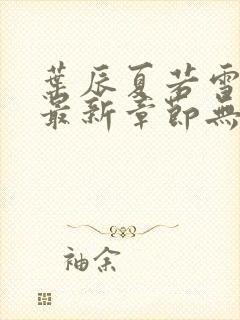 葉辰夏若雪
最新章節無
袖余